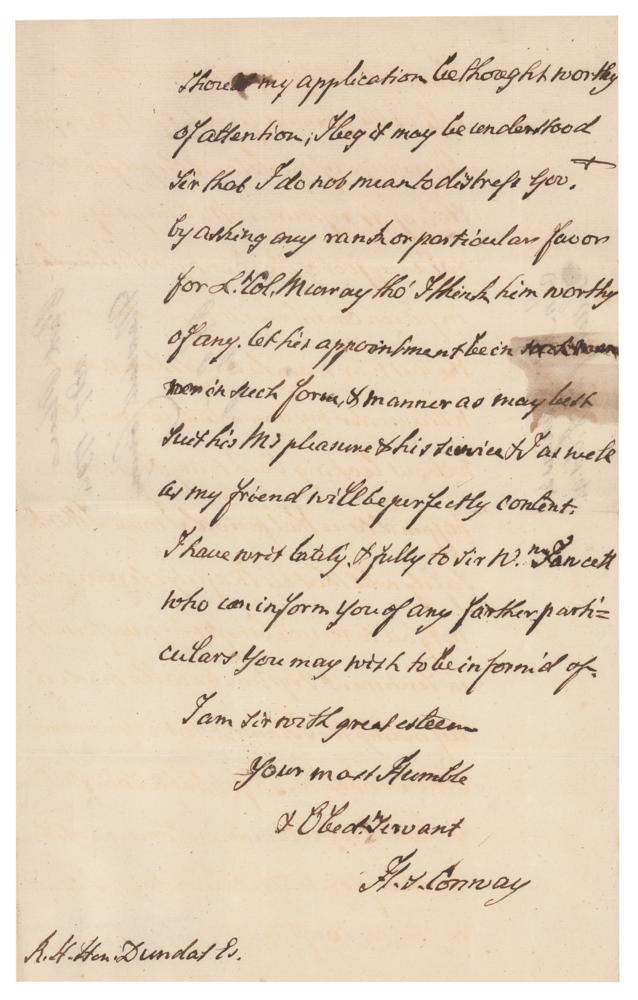 Shou my application be thought worthy
of attention; I beg it may be understood
Sir that I do not mean to distress Gov.t
by asking any rank or particular favor
for L. Col. Murray tho' I think him worthy
of any. let his appointment be in
in such form, & manner as may best
suit his M's pleasure & his service & I as well
as my friend will be perfectly content.
I have writ lately, & fully to Sir Wm. Fawcett
who can inform you of any farther parti=
culars you may wish to be inform'd of.
I am Sir with great esteem
Your most Humble
& Obed.t Servant
H. S. Conway
R. H. Hen. Dundas Es.